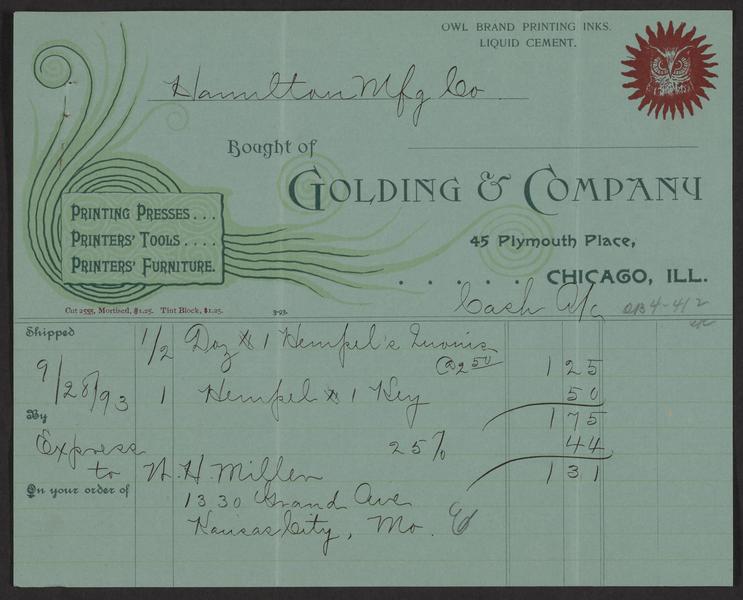 OWL BRAND PRINTING INKS.
LIQUID CEMENT.
Hamilton Mfg Co
Bought of
GOLDING & COMPANY
PRINTING PRESSES...
PRINTERS' TOOLS....
PRINTERS' FURNITURE.
45 Plymouth Place,
. . . . . CHICAGO, ILL.
Cut 2555, Mortised, $1.25. Tint Block, $1.25. 3-93.
Cash A/c
Shipped
1/2 Doz # 1 Hempel's Quoins
@2 50 1 25
9/28/93
1 Hempel # 1 Key 50
By 1 75
Express 25% 44
to W. H. Miller 1 31
On your order of
1330 Grand Ave
Kansas City, Mo.